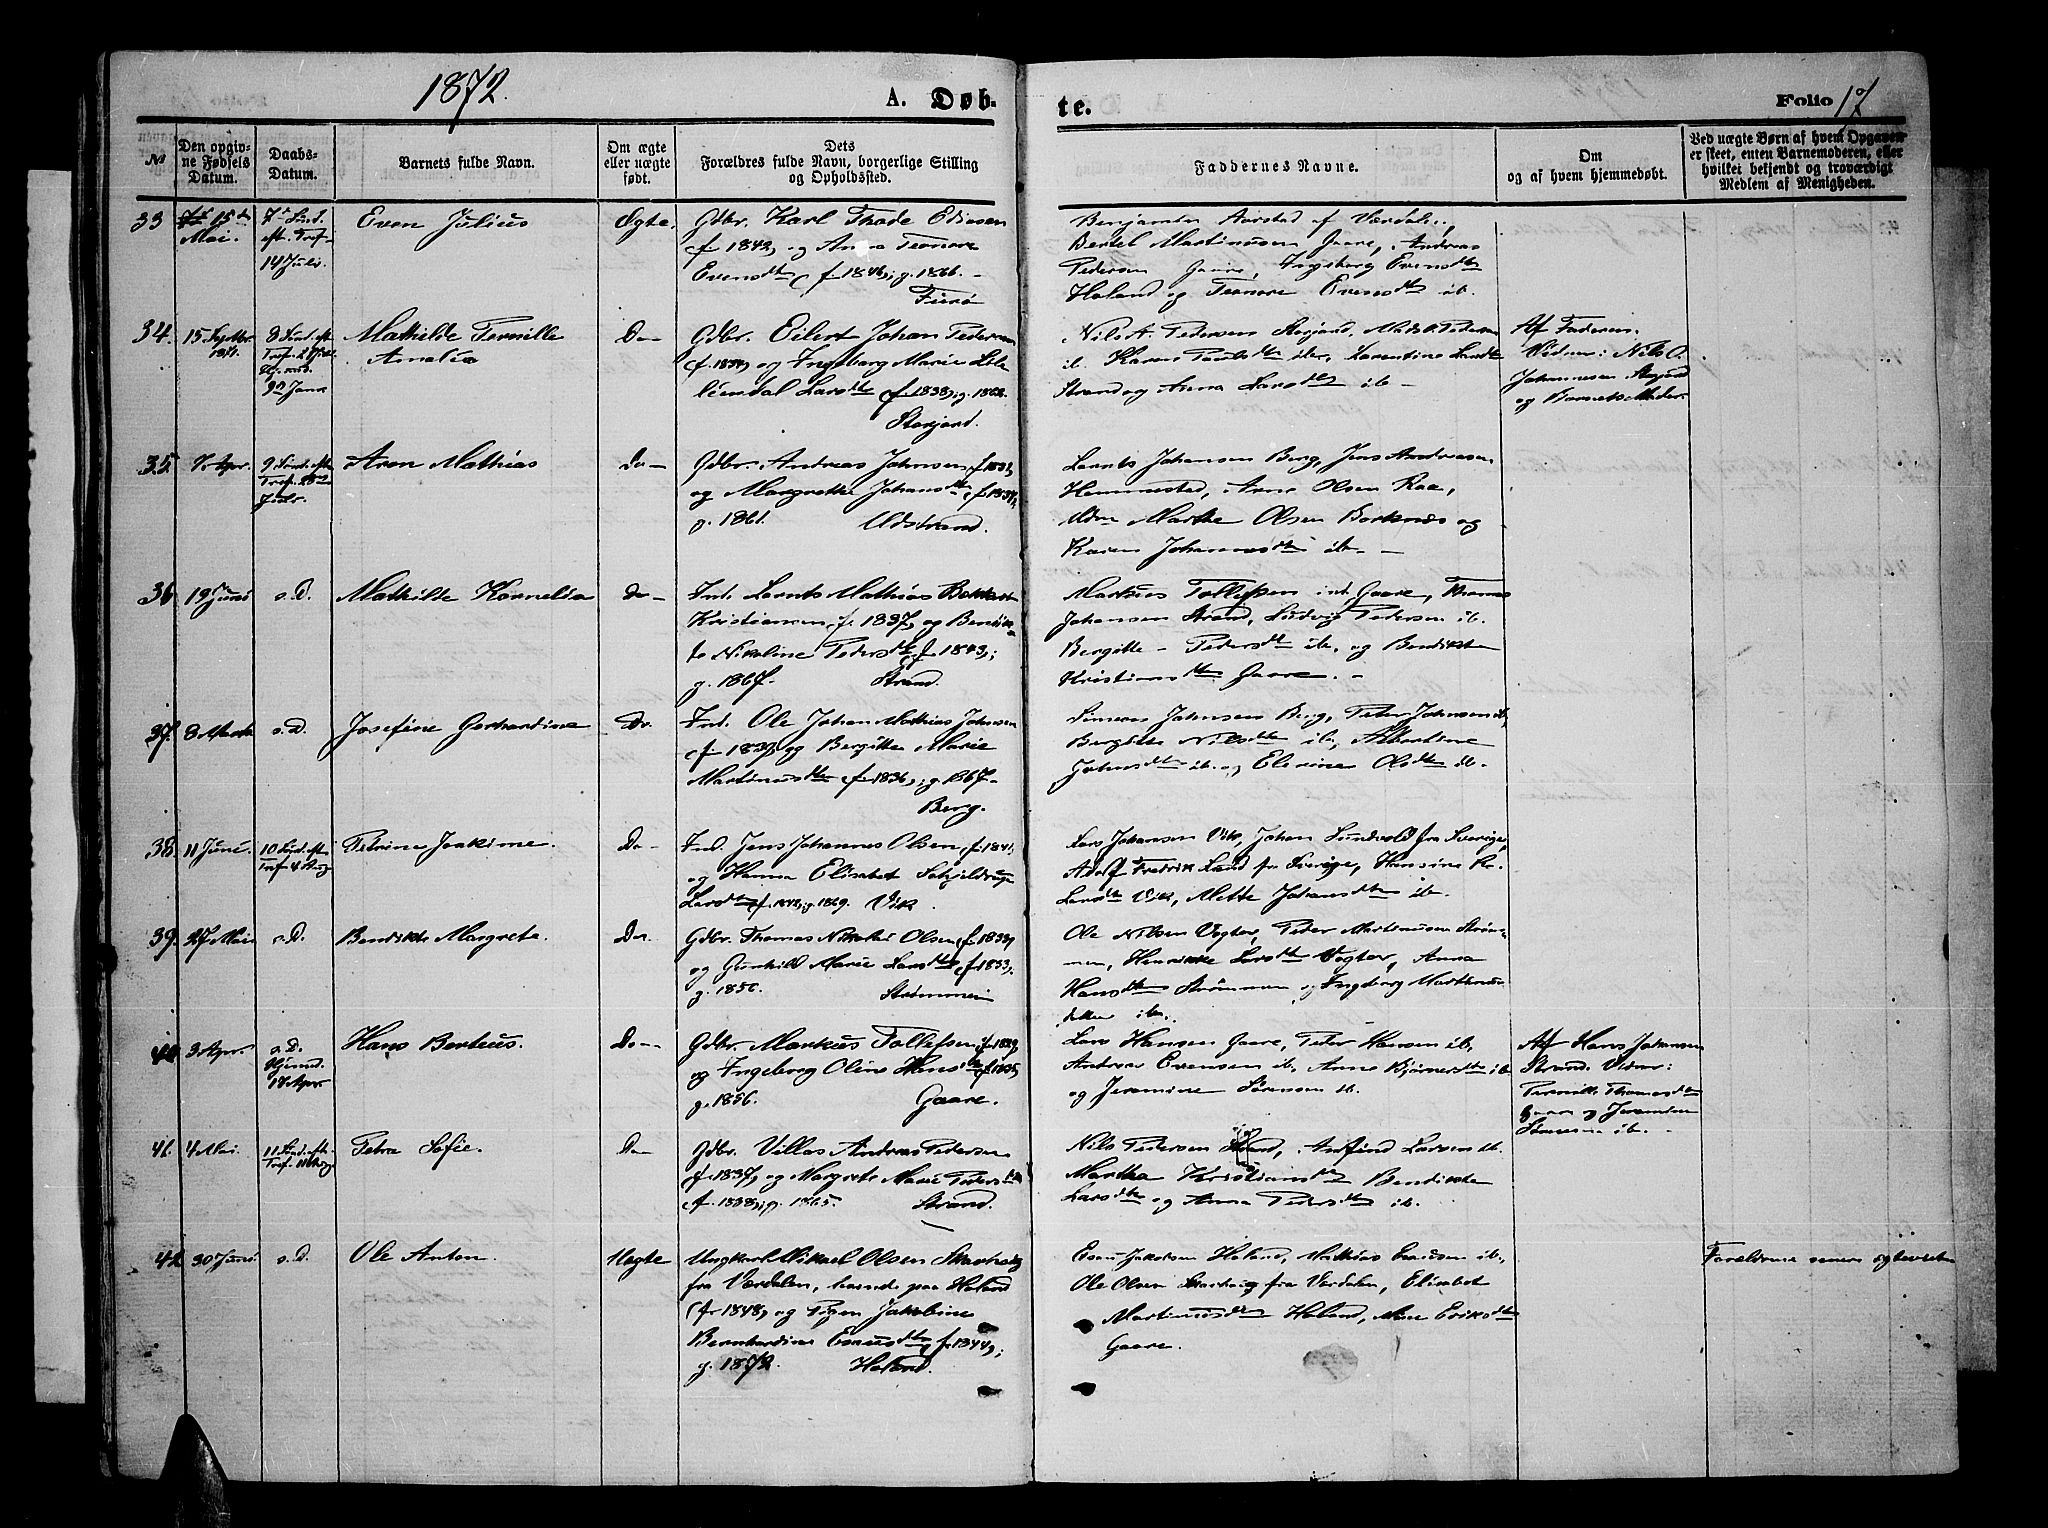 1872.
A. Døb-
te.
Folio 17
№
Den opgiv-
ne Fødsels
Datum.
Daabs-
Datum.
Barnets fulde Navn.
Om ægte
eller uægte
født.
Dets
Forældres fulde Navn, borgerlige Stilling
og Opholdssted.
Faddernes Navne.
Om
og af hvem hjemmedøbt.
Ved uægte Børn af hvem Opgaven
er skeet, enten Barnemoderen, eller
hvilket bekjendt og troværdigt
Medlem af Menigheden.
33
15de
Mai.
7d Sønd.
eft. Tref.
14 Juli.
Even Julius
Ægte.
Gdbr. Karl Thode Ediasen
f. 1843, og Anna
Evensdtr f. 1846; g. 1866.
Furø
Benjamin Aarstad af Værdalen,
Bertel Martinusen Gaare, Andreas
Pedersen Gaare, Ingeborg Evensdtr
Haland og Evensdtr ib.
34.
15 Septbr.
1871.
8 Sønd. eft.
Tref. 21 Juli
9n Janr
Mathilde Pernille
Amalia
Do
Gdbr. Eilert Johan Pedersen
f. 1834, og Ingeborg Marie
Larsdtr f. 1838; g. 1862.
Storjord.
Nils A. Pedersen Storjord,
ib. Karen ib., Larentine Larsdtr
Strand og Anna Larsdtr ib.
Af Faderen.
Vidner: Nils O.
Johannesen Storjord
og Barnets Moder.
35.
7. Apr.
9 Sønd. eft.
Tref. 28de
Juli.
Aron Mathias
Do
Gdbr. Andreas Johnsen, f. 1833,
og Margrethe Johansdtr, f. 1837,
g. 1861. Udstrand.
Lornts Johansen Berg, Jens Andreasen
Hemmestad, Arne Olsen Raa,
Marthe Olsen Borknæs og
Karen Johannesdtr ib.
36
19 Juni
s. D.
Mathilde Kornelia
Do
Ind. Lornts Mathias
Kristiansen, f. 1837, og Bendik-
te Nikoline Pedersdtr f. 1843;
g. 1867. Strand.
Markus Tollefsen ind. Gaare, Thomas
Johansen Strand, Ludvig Pedersen ib.
Bergitte Pedersdtr ib. og Bendikte
Kristiansdtr Gaare.
37.
8 Marts
s. D.
Josefine Gerhardine
Do.
Ind. Ole Johan Mathias Johnsen
f. 1839, og Bergitte Marie
Martinusdtr f. 1836; g. 1867.
Berg.
Simon Johnsen Berg, Peter Johnsen ib,
Bergitte Nilsdtr ib., Albertine
Johnsdtr ib. og Elerine Olsdtr ib.
38.
11 Juni.
10 Sønd. eft.
Tref. 4 Aug
Petrine Joakime.
Do
Ind. Jens Johannes Olsen, f. 1841,
og Hanna Elisabet Schjeldrup
Larsdtr f. 1842; g. 1869. Vik.
Lars Johansen Vik, Johan Lundvold fra Sverige,
Adolf Fredrik Lund fra Sverige, Hansine
Larsdtr Vik, Mette Johansdtr ib.
39.
27 Mai
s. D.
Bendikte Margrete.
Do.
Gdbr. Thomas Nikolai Olsen, f. 1833,
og Gunhild Marie Larsdtr, f. 1833,
g. 1856. Strømmen
Ole Nilsen Vogter, Peder Martinusen Strøm-
men, Henrikke Larsdtr Vogter, Anna
Hansdtr Strømmen og Ingeborg Martinus-
datter ib.
40.
3 Apr.
s. D.
Hjemd.
17 Apr.
Hans Berteus.
Do
Gdbr. Markus Tollefsen, f. 1829,
og Ingeborg Olina Hansdtr f. 1835,
g. 1856. Gaare.
Lars Hansen Gaare, Peter Hansen ib,
Andreas Evensen ib. Anne Bjørnersdtr ib
og Jeremine Sørensen ib.
Af Hans Johansen
Strand. Vidner:
Pernille Thomasdtr
Gaare og Jeremine
Sørensen ib.
41.
4 Mai.
11 Sønd. eft.
Tref. 11 Aug
Petra Sofie.
Do
Gdbr. Villas Andreas Pedersen
f. 1837, og Margrete Marie Pedersdtr
f. 1838; g. 1865. Strand.
Nils Pedersen Strand, Anfind Larsen ib.
Martha Kristiansdtr Bendikte
Larsdtr og Anna Pedersdtr ib.
42
30 Juni
s. D.
Ole Anton.
Uægte
Ungkarl Mikael Olsen
fra Værdalen, boende paa Haland
(f. 1848, og Pigen Jakobine
Bernhardine Esausdtr, f. 1844;
g. 1872. Haland.
Esau Jakobsen Haland, Mathias Esausen ib.
Ole Olsen fra Værdalen, Elisabet
Martinusdtr Haland, Ane Eriksdtr
Gaare.
Forældrene senere ægteviet